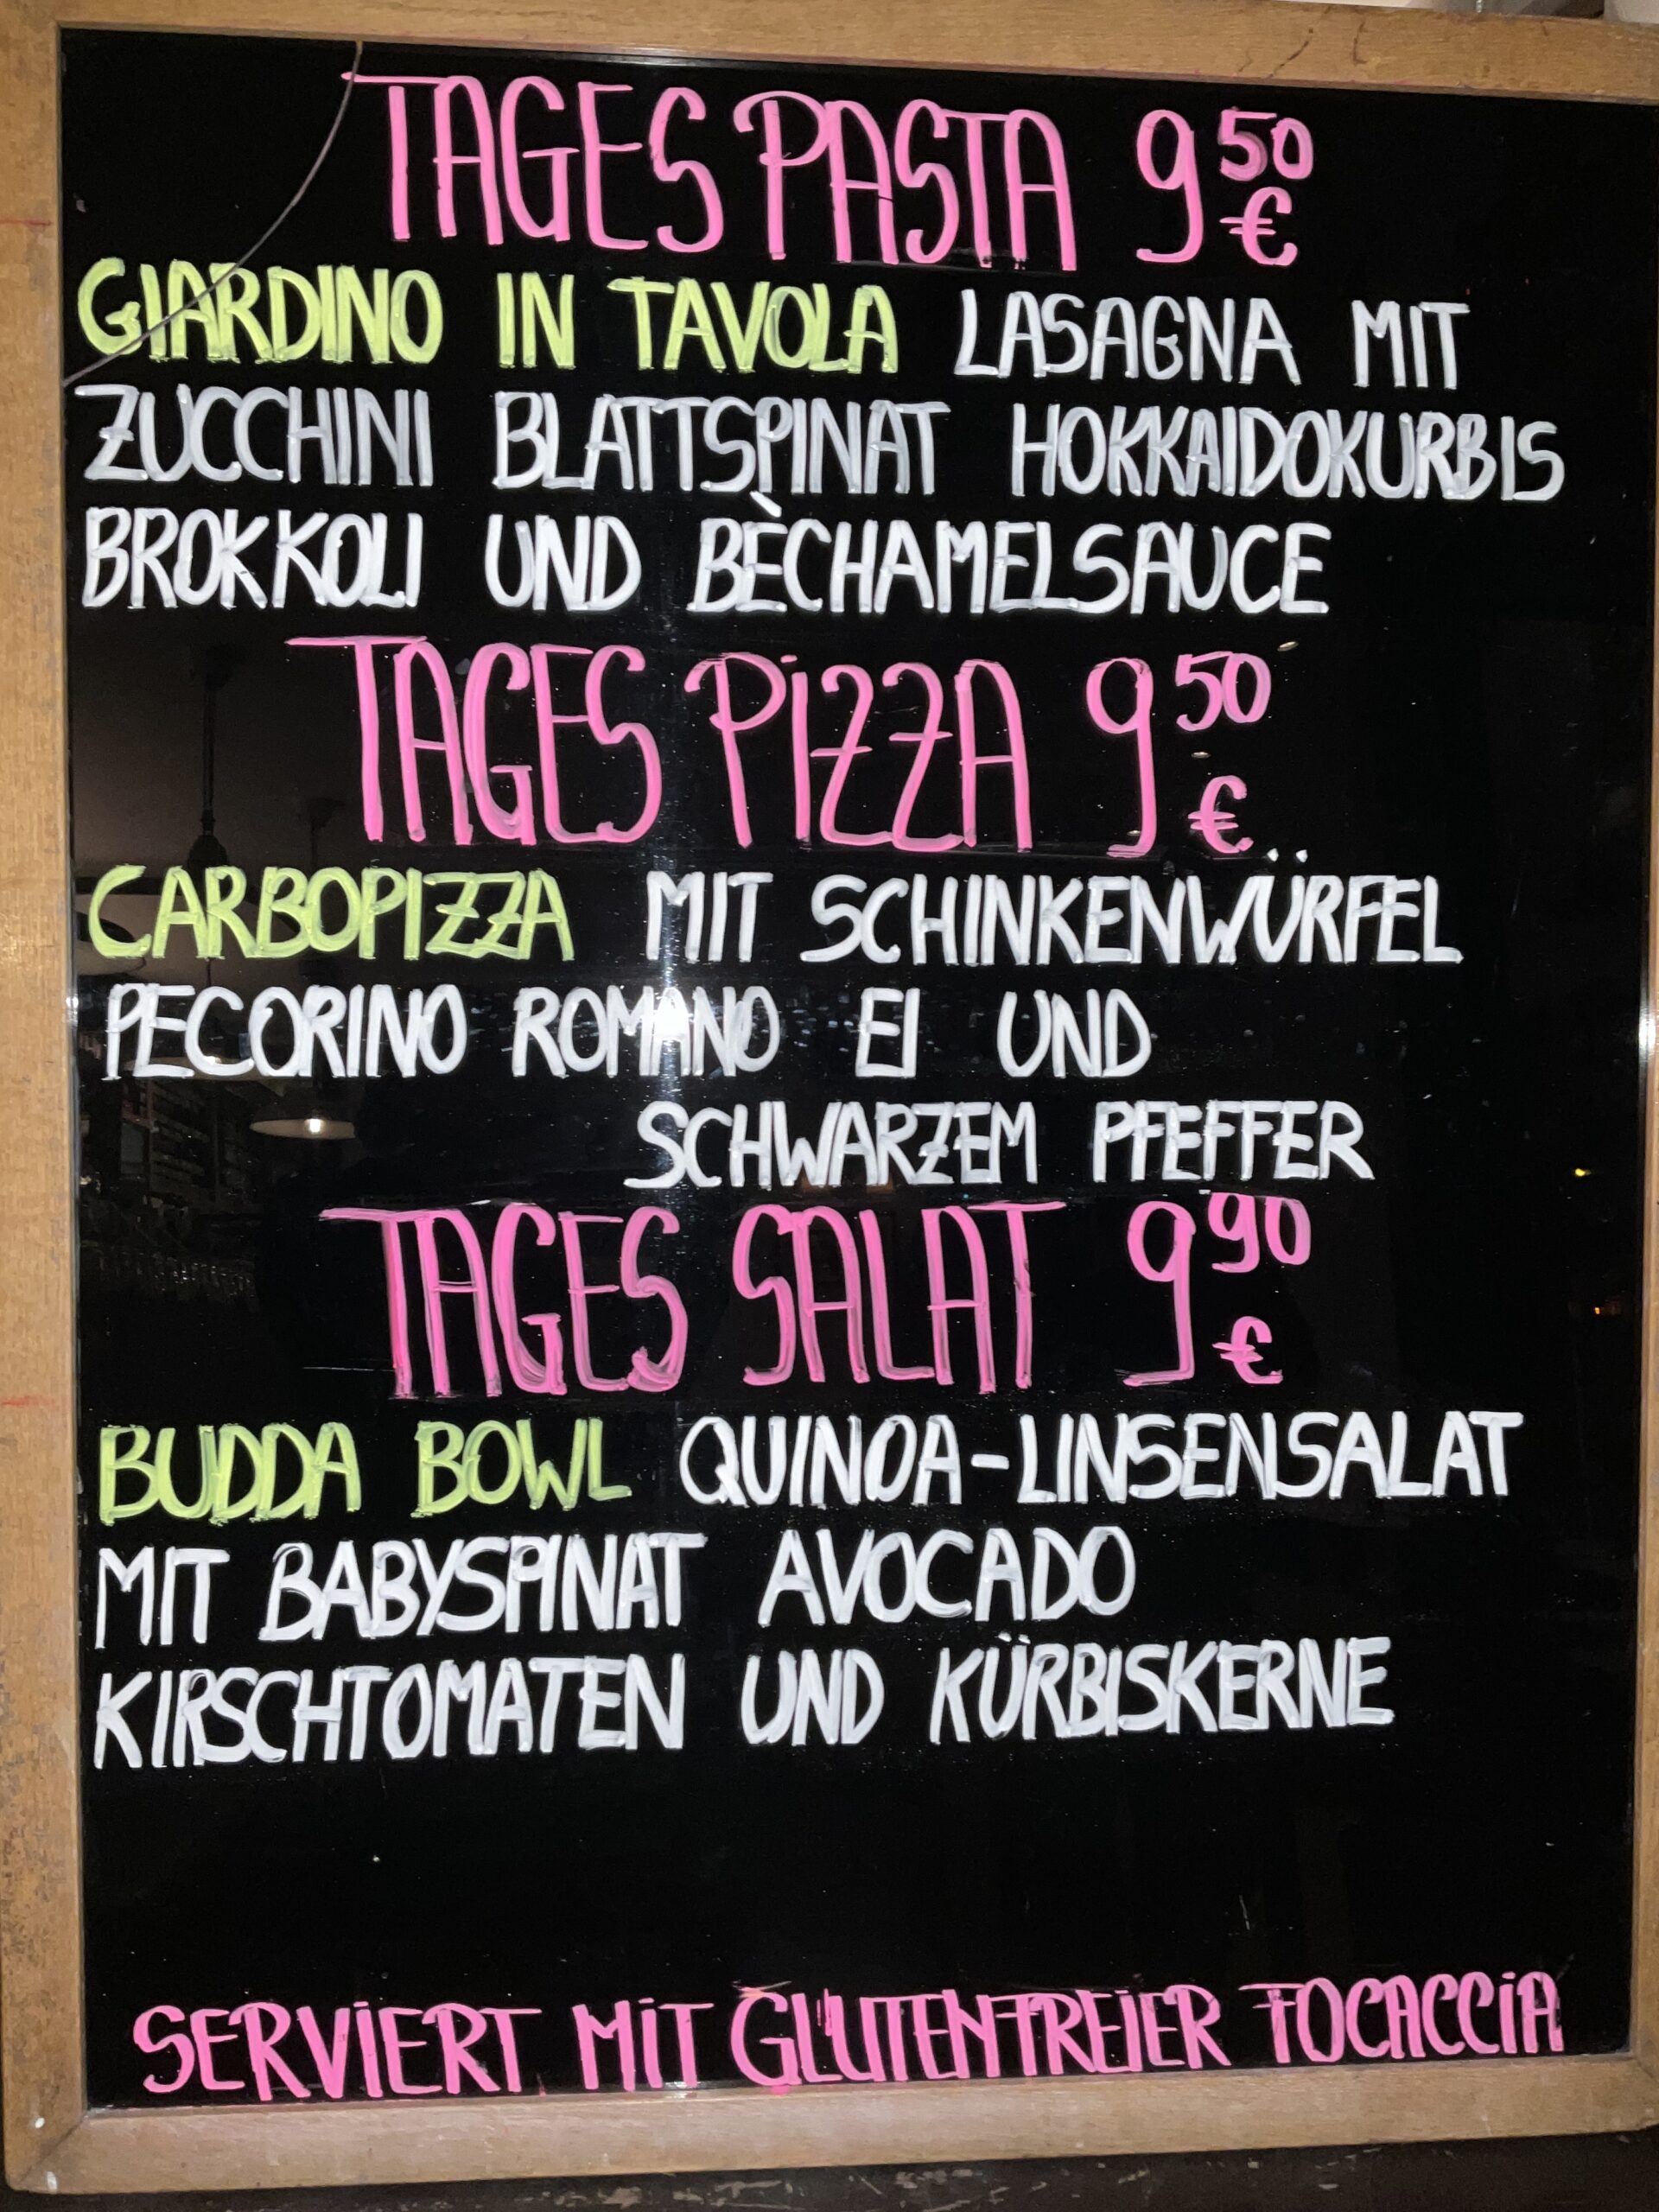 TAGES PASTA 9 50 €
GIARDINO IN TAVOLA LASAGNA MIT
ZUCCHINI BLATTSPINAT HOKKAIDOKURBIS
BROKKOLI UND BÈCHAMELSAUCE
TAGES PiZZA 9 50 €
CARBOPIZZA MIT SCHINKENWÜRFEL
PECORINO ROMANO EI UND
SCHWARZEM PFEFFER
TAGES SALAT 9 90 €
BUDDA BOWL QUINOA-LINSENSALAT
MIT BABYSPINAT AVOCADO
KIRSCHTOMATEN UND KÜRBISKERNE
SERViERT MiT GLUTENFREiER FOCACCiA